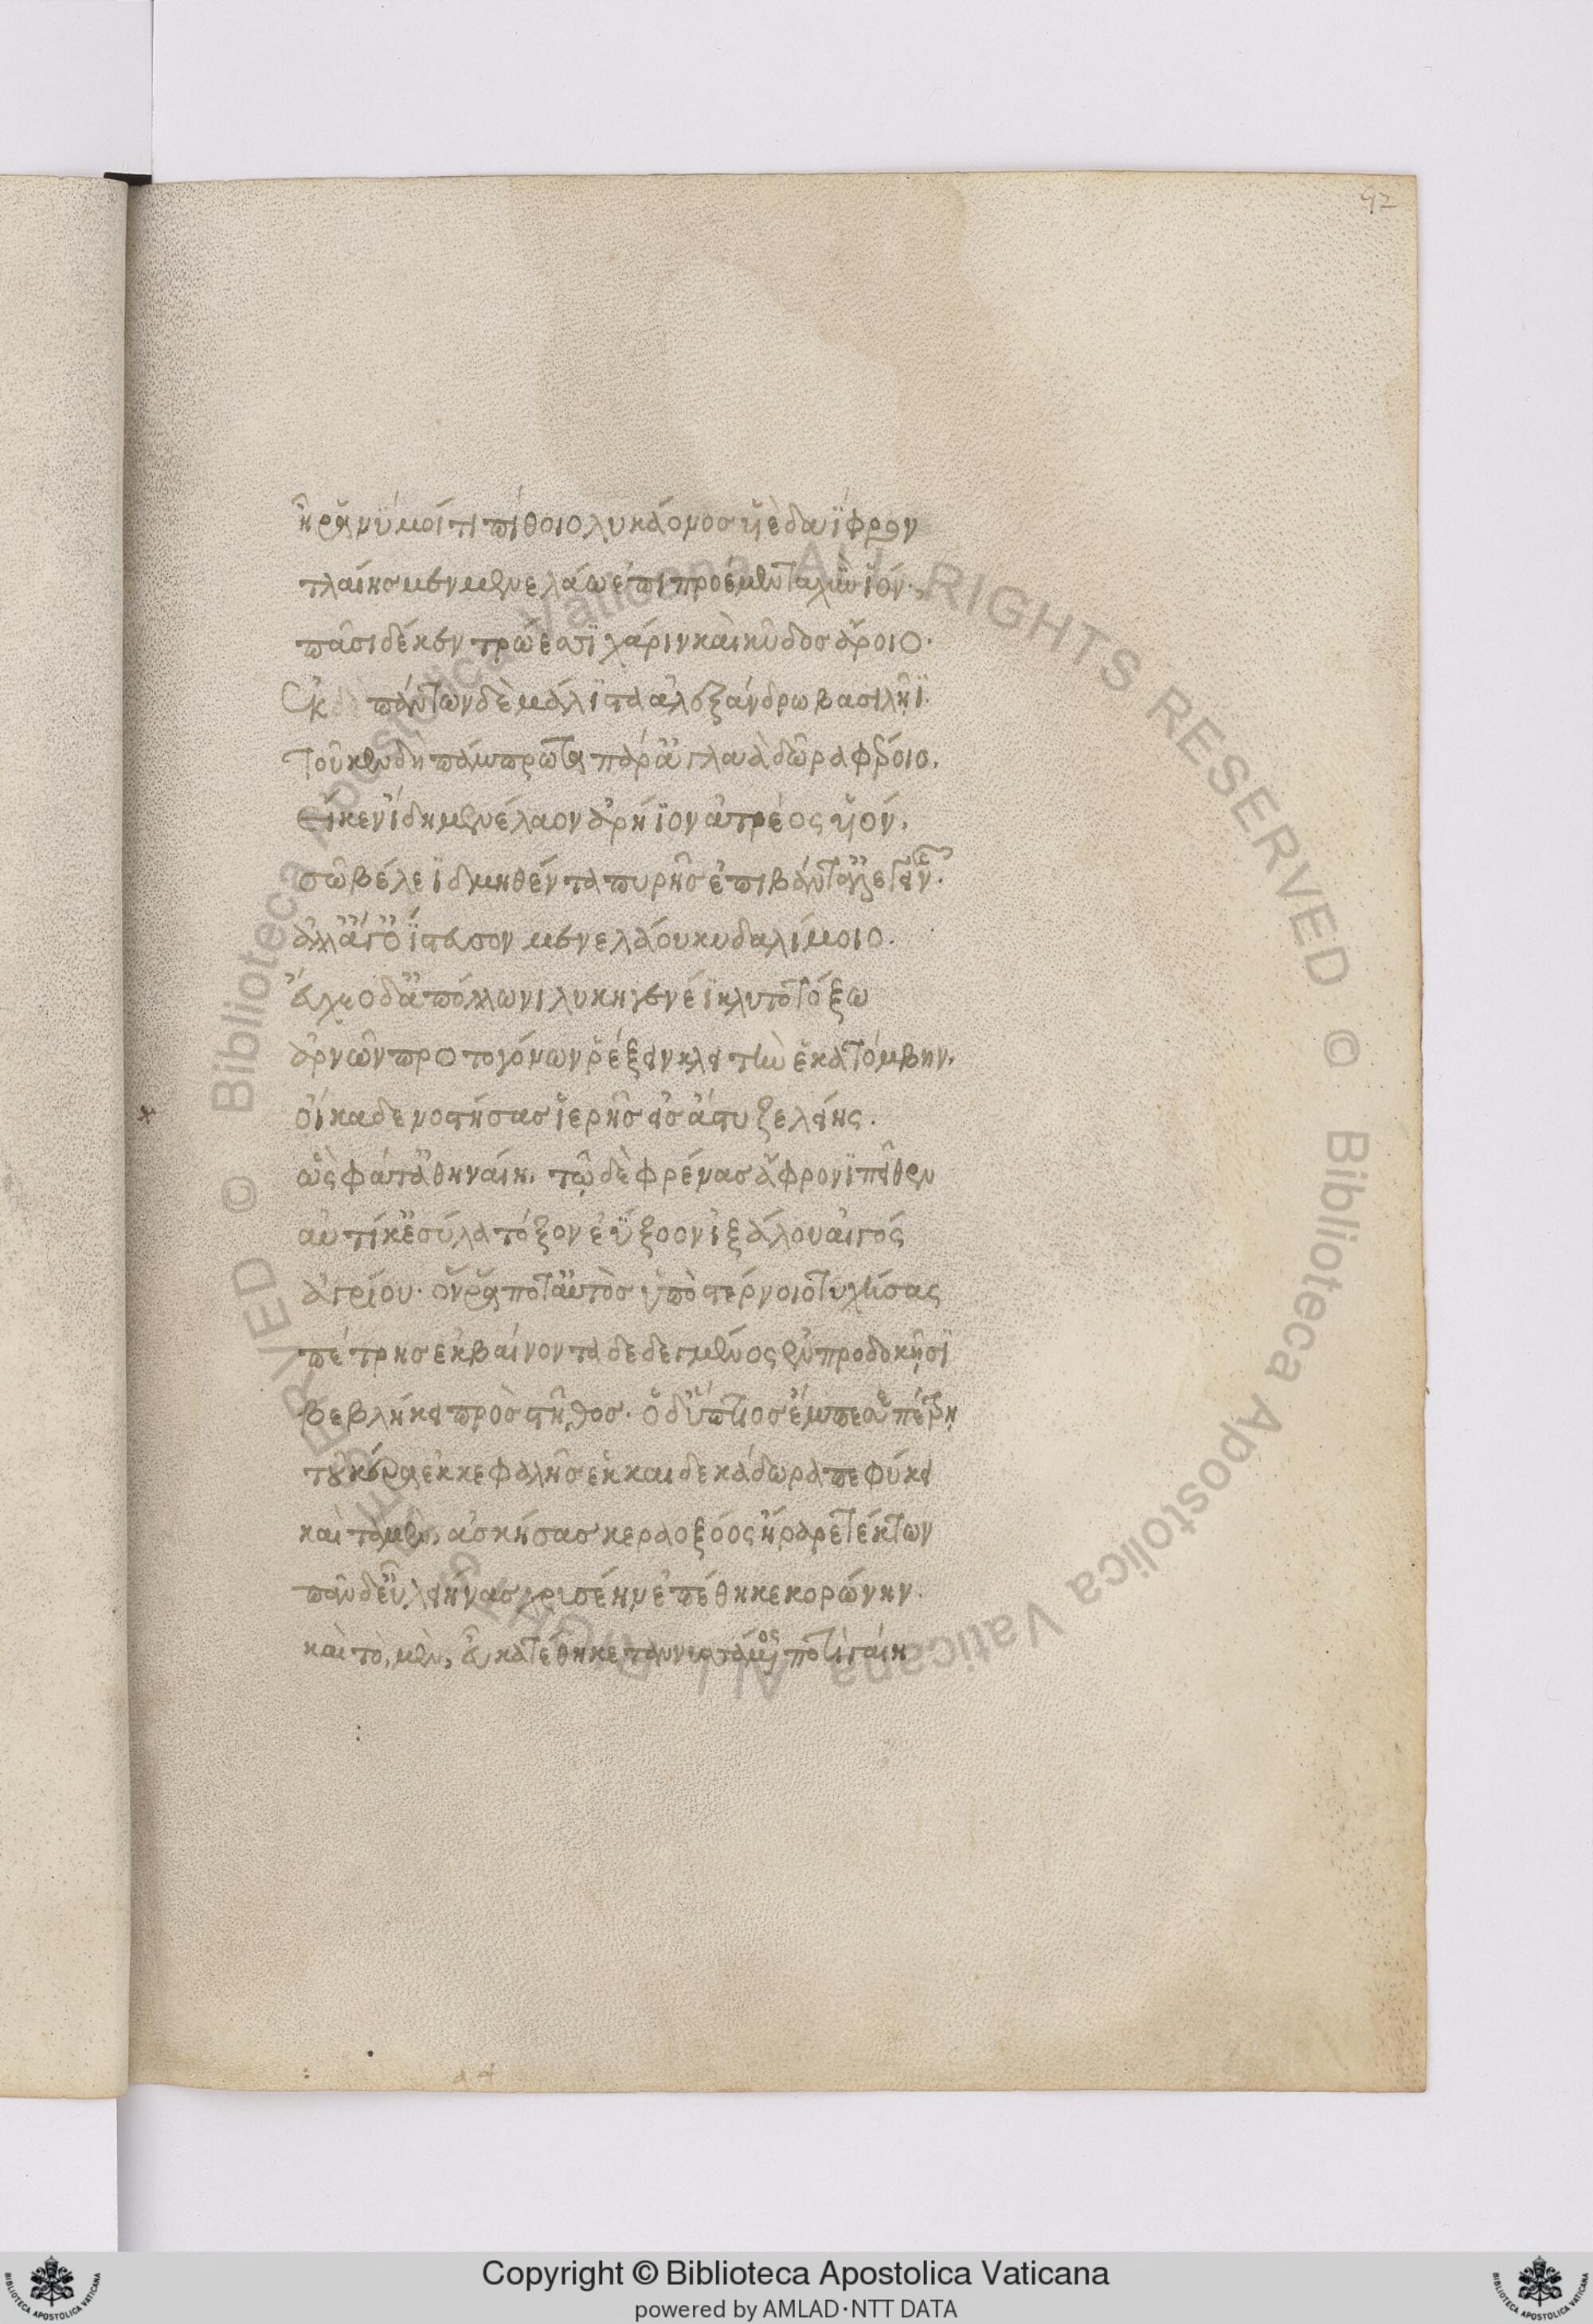 92
ἦ ῥά νύ μοί τι πίθοιο λυκάονος ὑϊὲ δαΐφρον
τλαίης μενμενελάω ἐπιπροέμεν ταχὺν ἰόν.
πᾶσι δέ κεν τρώεσσι χάριν καὶ κῦδος ἄροιο.
Ἐκ πάντων δὲ μάλιστα ἀλεξάνδρω βασιλῆϊ.
Τοῦ κεν δὴ πάμπρωτα πάρ ἀγλαὰ δῶρα φέροιο.
αἴ κεν ἴδη μενέλαον ἀρήϊον ἀτρέος ὑϊόν.
σῶ βέλεϊ δμηθέντα πυρῆς ἐπιβάντ ἀλεγεινῆς.
ἀλλ ἄγ ὀΐστευσον μενελάου κυδαλίμοιο.
εὔχεο δ ἀπόλλωνι λυκηγενέϊ κλυτοτόξω
ἀρνῶν προτογόνων ῥέξειν κλειτὴν ἑκατόμβην.
οἴκαδε νοστήσας ἱερῆς εἰς ἄστυ ζελείης.
ὣς φάτ ἀθηναίη. τῷ δὲ φρένας ἄφρονι πεῖθεν
αὐτίκ ἐσύλα τόξον ἐΰξοον ἰξάλου αἰγός
ἀγρίου. ὅν ῥά ποτ αὐτὸς ὑπὸ στέρνοιο τυχήσας
πέτρης ἐκβαίνοντα δεδεγμένος ἐν προδοκῆσι
βεβλήκει πρὸς στῆθος. ὁ δ ὕπτιος ἔμπεσε πέτρῃ
τοῦ κέρα ἐκ κεφαλῆς ἑκκαιδεκάδωρα πεφύκει
καὶ τὰ μὲν, ἀσκήσας κεραοξόος ἤραρε τέκτων
πᾶν δ εὖ λειήνας χρισέην ἐπέθηκε κορώνην.
καὶ τὸ, μὲν, εὖ κατέθηκε τανυσσάμενος ποτὶ γαίη
Copyright © Biblioteca Apostolica Vaticana
powered by AMLAD·NTT DATA
© Biblioteca Apostolica Vaticana ALL RIGHTS RESERVED © Biblioteca Apostolica Vaticana ALL RIGHTS RESERVED
BIBLIOTECA APOSTOLICA VATICANA
BIBLIOTECA APOSTOLICA VATICANA